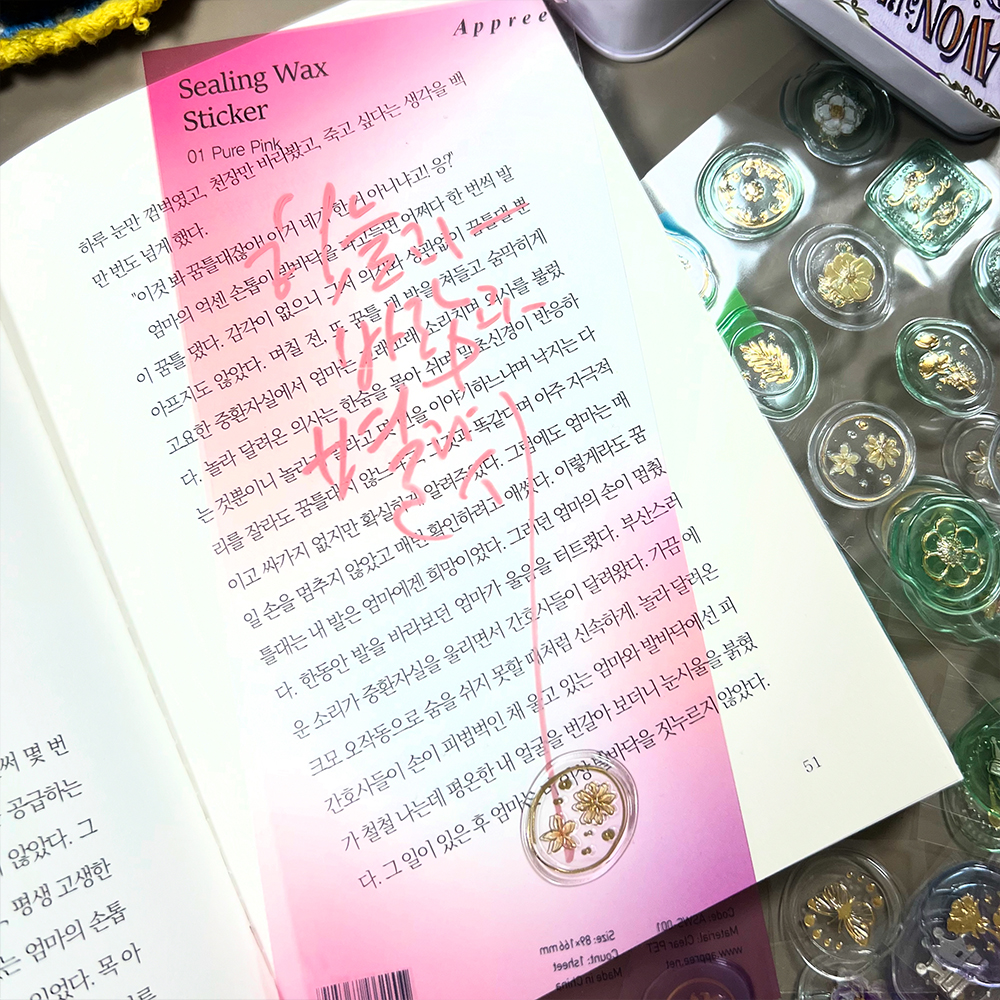 Appree
Sealing Wax
Sticker
01 Pure Pink
하루 눈만 껌벅였고, 천장만 바라봤고, 죽고 싶다는 생각을 백
만 번도 넘게 했다.
"이것 봐 꿈틀대잖아! 이거 네가 한 거 아니냐고! 응?"
엄마의 억센 손톱이 발바닥을 파고들면 어쩌다 한 번씩 발
이 꿈틀 댔다. 감각이 없으니 그저 의지와 상관없이 꿈틀댈 뿐
아프지도 않았다. 며칠 전, 또 꿈틀 대 발을 쳐들고 숨막히게
고요한 중환자실에서 엄마는 고래고래 소리치며 의사를 불렀
다. 놀라 달려온 의사는 한숨을 몰아 쉬며 말초신경이 반응하
는 것뿐이니 놀라지 말라고 몇 번을 이야기하느냐며 낙지는 다
리를 잘라도 꿈틀대지 않느냐고 똑같으며 아주 지극적
이고 싸가지 없지만 확실하게 알려주었다. 그럼에도 엄마는 매
일 손을 멈추지 않았고 매번 확인하려고 애썼다. 이렇게라도 꿈
틀대는 내 발은 엄마에겐 희망이었다. 그러던 엄마의 손이 멈췄
다. 한동안 발을 바라보던 엄마가 울음을 터트렸다. 부산스러
운 소리가 중환자실을 울리면서 간호사들이 달려왔다. 가끔 에
크모 오작동으로 숨을 쉬지 못할 때처럼 신속하게. 놀라 달려온
간호사들이 손이 피범벅인 채 울고 있는 엄마와 발바닥에선 피
가 철철 나는데 평온한 내 얼굴을 번갈아 보더니 눈시울을 붉혔
다. 그 일이 있은 후 엄마는 더 이상 발바닥을 짓누르지 않았다.
51
하늘과
바람과
별과 시
써 몇 번
공급하는
않았다. 그
평생 고생한
는 엄마의 손톱
이었다. 목 아
Size: 89×166 mm
Count: 1sheet
Made in China
Code: ASWS-001
Material: Clear PET
www.appree.net
AVON